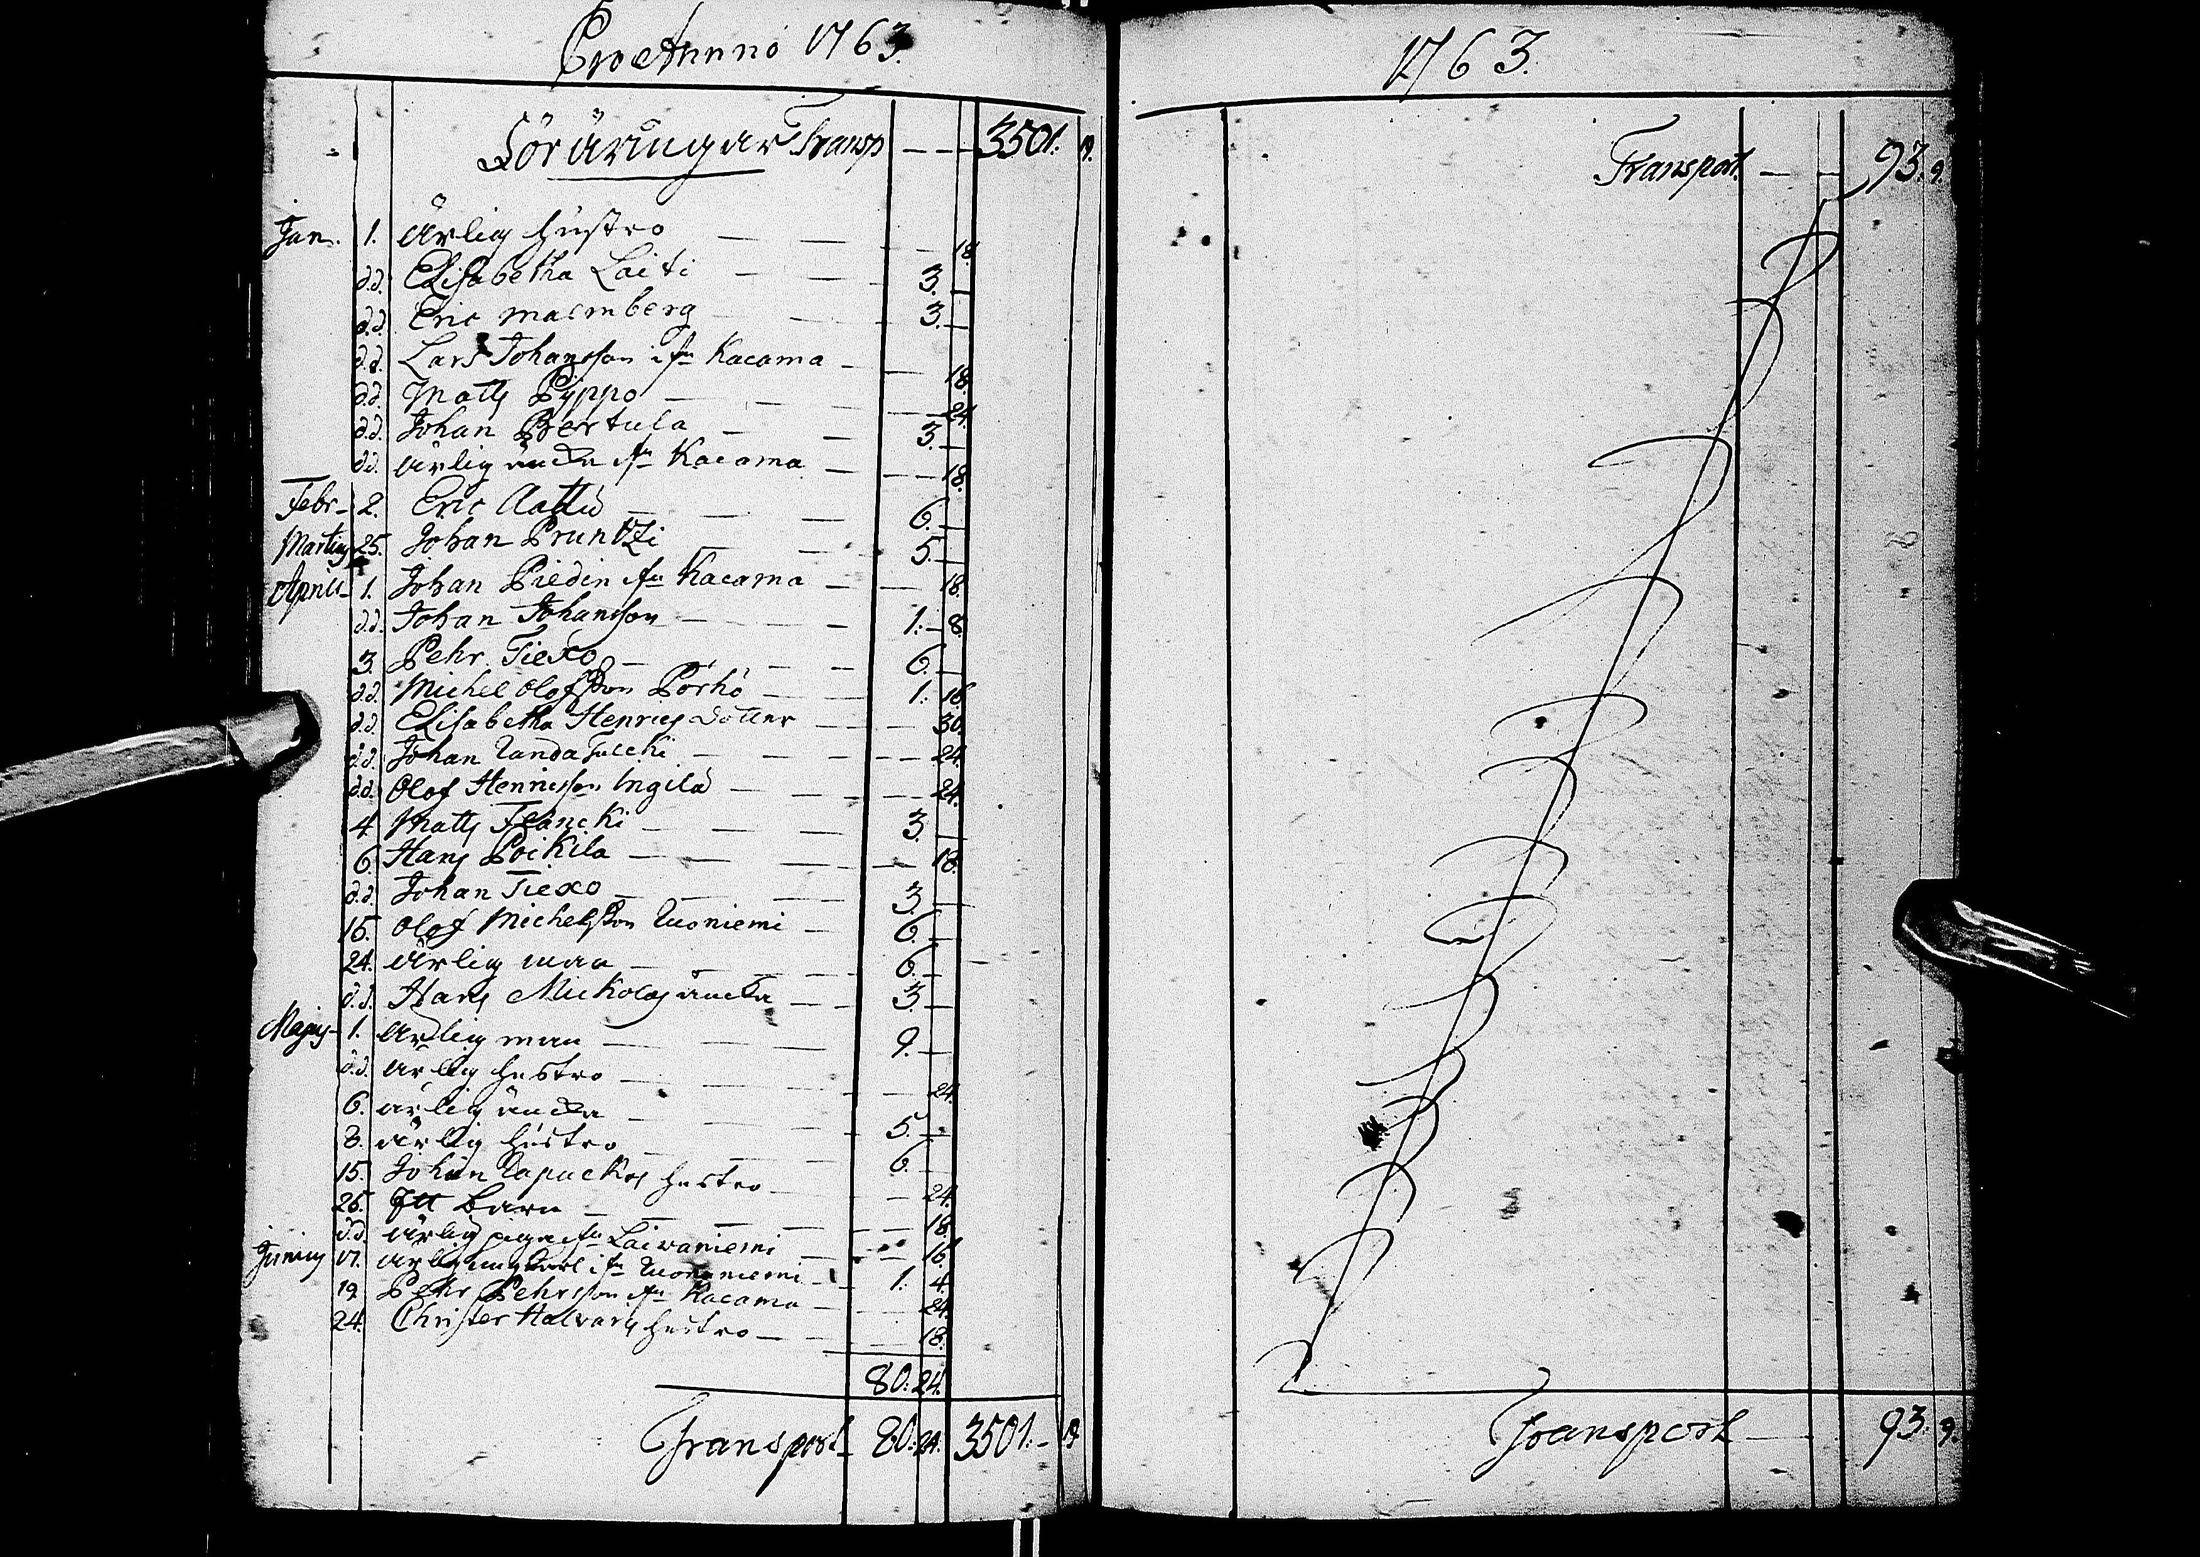 Pro Annno 1763.
Föräringar Transp — — 3501. 19.
Jan. 1. Ärlig hustro — — — 18.
d.d. Elisabetha Laiti — — 3. —
d.d. Eric Malmberg — — 3. —
d.d. Lars Johansson i fr Kacama — — 18.
d.d. Matts Pyppo — — — 24.
d.d. Johan Bertula — — 3. —
d.d. ärlig äncka fr Kacama — — 18.
Febr — 2. Eric Aattu — — 6. —
Martius 25. Johan Pruntzi — — 5. —
Aprill — 1. Johan Piedin fr Kacama — — 18.
d.d. Johan Johansson — — 1. — 8.
3. Pehr Tiexo — — 6. —
d.d. Michel Olofsson Pörhö — — 1. 16.
d.d. Elisabetha Henrics dotter — — 30.
d.d. Johan — — — 24.
d.d. Olof Hennesson Ingilä — — 24.
4. Matts Flancki — — 3. —
6. Hans Poikila — — — 18.
d.d. Johan Tiexo — — 3. —
15. Olof Michelsson Wuoniemi — 6. —
24. Ärlig man — — 6. —
d.d. Hans Mickolas äncka — — 3. —
Majus — 1. ärlig man — — 9. —
d.d. ärlig hustro — — — 24.
6. ärlig äncka — — 5. —
8. ärlig hustro — — 6. —
15. Johan Lapuckos hustro — — 24.
25. Ett barn — — — 18.
d.d. ärlig piga fr Laivaniemi — — 16.
Junius 17. ärlig ung karl i fr Wuononiemi — 1. 4.
19. Pehr Pehrsson fr Kacama — — 24.
24. Christer Halvaris hustro — — 18.
80. 24.
Transport — 80. 24. 3501. — 19
1763.
Transport. — — 93. 9.
Transport — 93. 9.